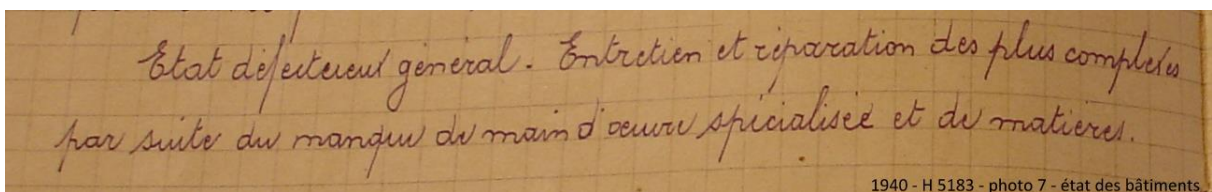 Etat défectueux général. Entretien et réparation des plus complexes
par suite du manque de main d'œuvre spécialisée et de matières.
1940 - H 5183 - photo 7 - état des bâtiments